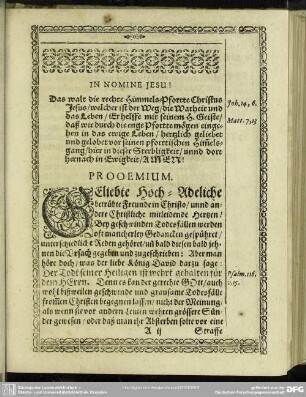 IN NOMINE JESU!
Das walt die rechte Himmels-Pforte Christus
Jesus / welcher ist der Weg / die Warheit und
das Leben / Er helffe mit seinem H. Geiste /
daß wir durch die enge Pforte mögen einge-
hen in das ewige Leben / hertzlich geliebet
und gelobet vor seinen
gang / hier in dieser Sterbligkeit / unnd dort
hernach in Ewigkeit / AMEN!
Joh. 14, 6.
Matt. 7, 13
PROOEMIUM.
GEliebte Hoch-Adeliche
betrübte Freunde in Christo / unnd an-
dere Christliche mitleidende Hertzen /
Bey geschwinden Todesfällen werden
oft mancherley Gedancken gespühret /
unterschiedliche Reden gehöret / uñ bald diesen bald jeh-
nen die Ursach gegeben und zugeschrieben: Aber man
hör doch / was der liebe König David darzu sage:
Der Todt seiner Heiligen ist wehrt gehalten für
dem HErrn. Denn es kan der gerechte GOtt / auch
wol bißweilen geschwinde und grausame Todesfälle
frommen Christen begegnen lassen / nicht der Meinung /
als wenn sie vor andern Leuten wehren grössere Sün-
der gewesen / oder daß man ihr Absterben solte vor eine
Psalm. 116.
v. 15.
A ij
Straffe